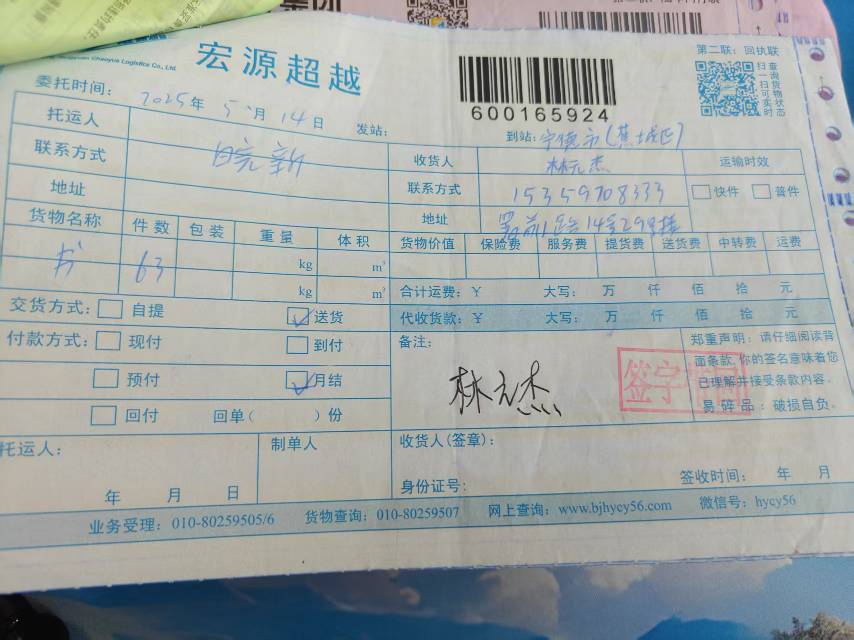 集团
Chaoyue Logistics Co., Ltd.
宏源超越
第二联：回执联
扫一扫可实时
查询货物状态
600165924
委托时间： 2025年 5月 14日 发站： 到站：宁德市(蕉城区)
托运人 皖新 收货人 林元杰 运输时效
联系方式 联系方式 15359708333 快件 普件
地址 地址 署前路14号
货物名称 件数 包装 重量 体积 货物价值 保险费 服务费 提货费 送货费 中转费 运费
书 63 kg m³
kg m³ 合计运费：￥ 大写： 万 仟 佰 拾 元
交货方式： 自提 送货 代收货款：￥ 大写： 万 仟 佰 拾 元
付款方式： 现付 到付 备注：
预付 月结
回付 回单( )份
林元杰
签字
郑重声明：请仔细阅读背
面条款，你的签名意味着您
已理解并接受条款内容。
易碎品：破损自负。
托运人： 制单人 收货人(签章)：
年 月 日 身份证号： 签收时间： 年 月
业务受理：010-80259505/6 货物查询：010-80259507 网上查询：www.bjhycy56.com 微信号：hycy56